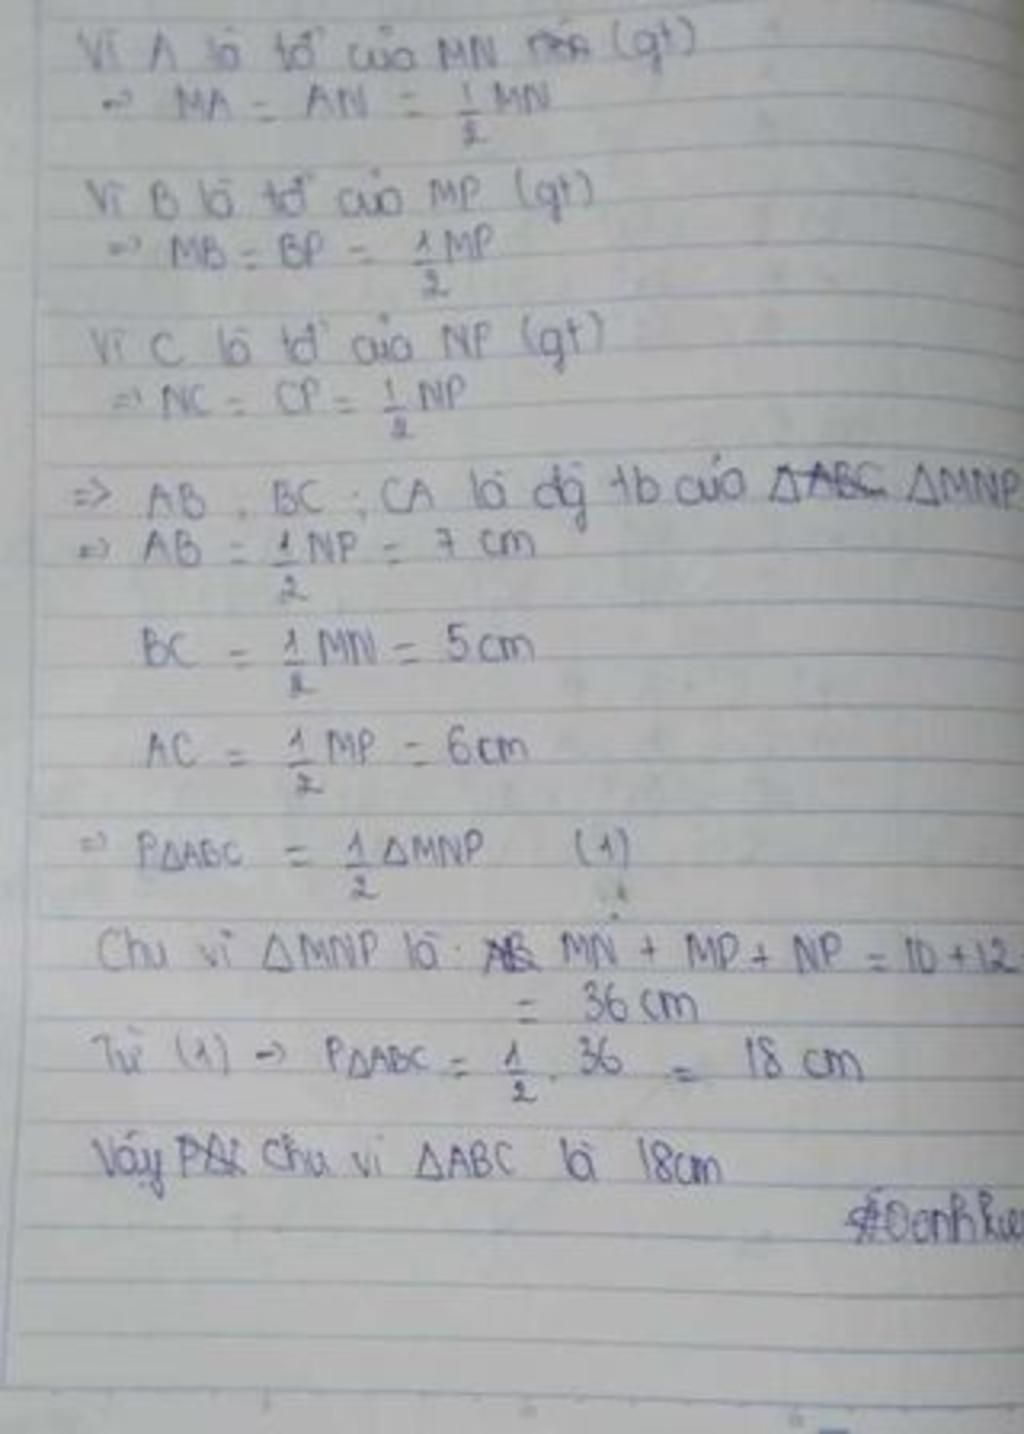 Vì A là tđ của MN (gt)
=> MA = AN = 1/2 MN
Vì B là tđ của MP (gt)
=> MB = BP = 1/2 MP
Vì C là tđ của NP (gt)
=> NC = CP = 1/2 NP
=> AB, BC; CA là đg tb của ΔABC ΔMNP
=> AB = 1/2 NP = 7 cm
BC = 1/2 MN = 5 cm
AC = 1/2 MP = 6 cm
=> PΔABC = 1/2 ΔMNP (1)
Chu vi ΔMNP là: MN + MP + NP = 10 + 12
= 36 cm
Từ (1) => PΔABC = 1/2 . 36 = 18 cm
Vậy chu vi ΔABC là 18cm